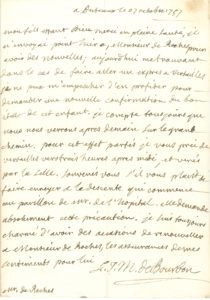 a Buisancy le 27 octobre 1757
mon fils etant Dieu mercy en pleine santé, il
n'envoya point hier a, Monsieur de Roches pour
avoir des nouvelles; aujourd'hui me trouvant
dans le cas de faire aller un exprès a versailles
je ne puis m'empecher d'en profiter pour
demander une nouvelle confirmation du bon
état de cet enfant. je compte toujours que
nous nous verrons après demain sur le grand
chemin. pour cet effet partés je vous prie de
versailles vers trois heures après midi et venés
par la Celle. souvenés vous s'il vous plait de
faire enrayer a la descente qui commence
au pavillon de Mr. de l'hopital. elle demande
absolument cette precaution. je suis toujours
charmé d'avoir des occasions de renouveller
a Monsieur de Roches, les assurances de mes
sentiments pour lui
L.J.M. de Bourbon
Mr. de Roches